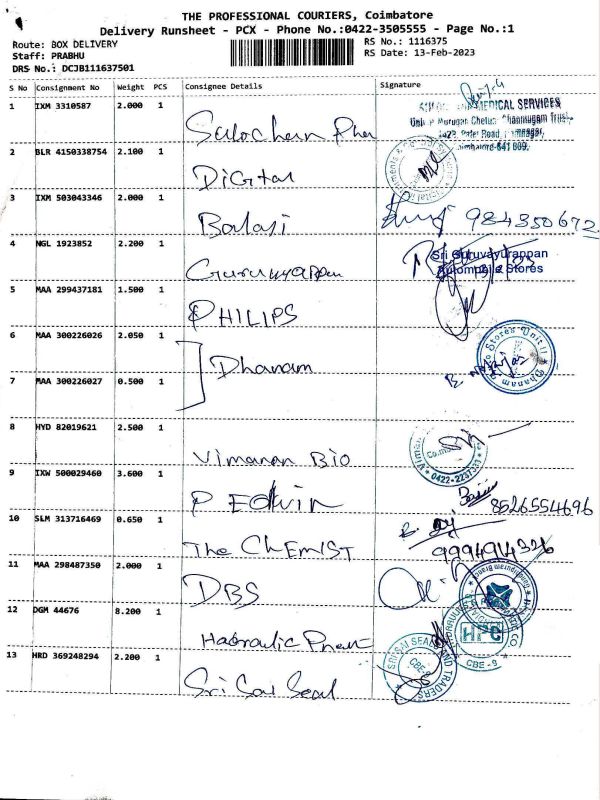 THE PROFESSIONAL COURIERS, Coimbatore
Delivery Runsheet - PCX - Phone No.:0422-3505555 - Page No.:1
Route: BOX DELIVERY
Staff: PRABHU
DRS No.: DCJB111637501
RS No.: 1116375
RS Date: 13-Feb-2023
S No Consignment No Weight PCS Consignee Details Signature
1 IXM 3310587 2.000 1
MEDICAL SERVICES
2 BLR 4150338754 2.100 1 Digital
3 IXM 503043346 2.000 1 Balaji
4 NGL 1923852 2.200 1 Guruvayappan
Sri Guruvayurappan
Automobile Stores
5 MAA 299437181 1.500 1 PHILIPS
6 MAA 300226026 2.050 1 Dhanam
7 MAA 300226027 0.500 1
8 HYD 82019621 2.500 1 Vimanan Bio
0422-2237331
9 IXW 500029460 3.600 1 P Edwin 8526554696
10 SLM 313716469 0.650 1 The CHEMIST 9994914326
11 MAA 298487350 2.000 1 DBS
12 DGM 44676 8.200 1
HPC
CBE - 9
13 HRD 369248294 2.200 1 Sri Sai Seal
SRI SAI SEALS AND TRADERS
CBE-9